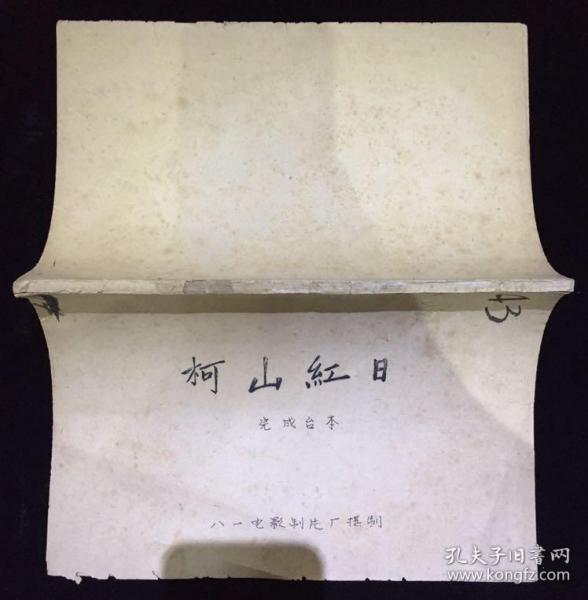 43
柯山紅日
完成台本
八一电影制片厂摄制
孔夫子旧书网
www.kongfz.com